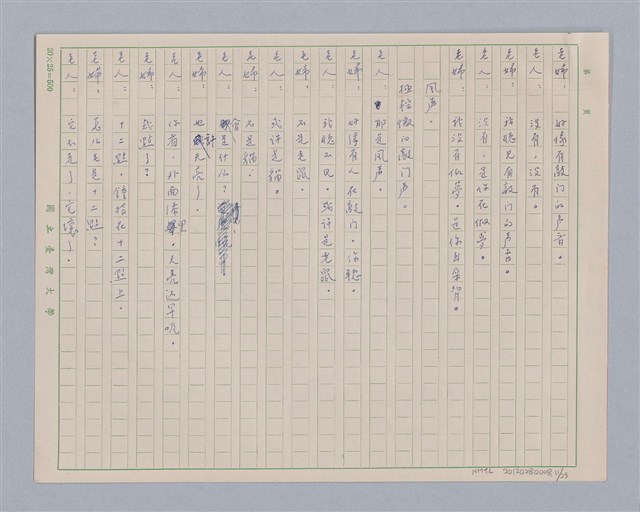 第 頁
老婦：好像有敲门的声音。
老人：沒有，沒有。
老婦：我聽見有敲门的声音。
老人：沒有，是你在做夢。
老婦：我沒有做夢。是你耳朵背。
風声。
極輕微的敲门声。
老人：那是風声。
老婦：好像有人在敲门。你聽。
老人：我聽不見。或許是老鼠。
老婦：不是老鼠。
老人：或許是貓。
老婦：不是貓。
老人：會是什么？
老婦：也許天亮了。
老人：你看，外面漆黑。天亮还早呢。
老婦：幾點了？
老人：十二點。鐘指在十二點上。
老婦：怎么老是十二點？
老人：它不走了。它壞了。
20×25=500
國立臺灣大學
NMTL 20120280008 11/23